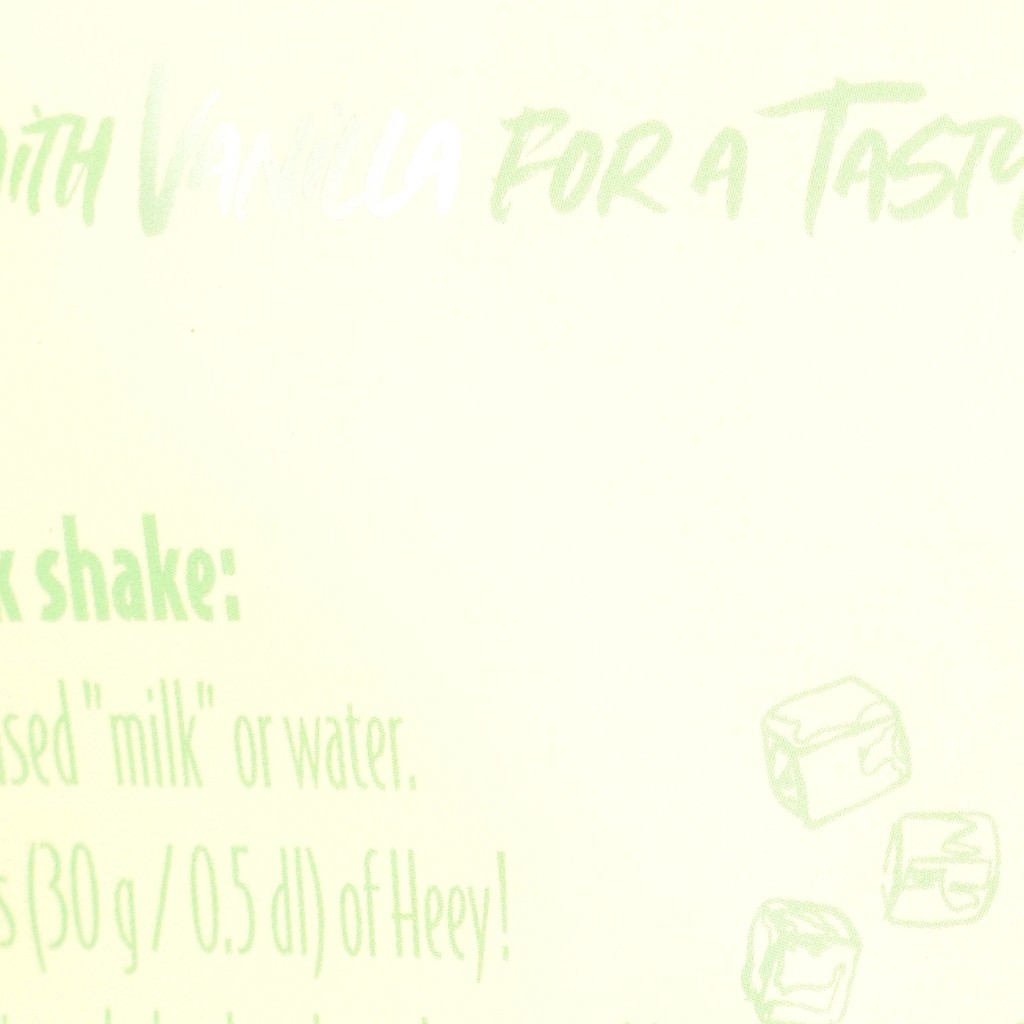 with Vanilla for a Tasty
k shake:
ased "milk" or water.
s (30 g / 0.5 dl) of Heey!